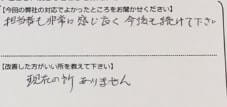 【今回の弊社の対応でよかったところをお聞かせください】
担当者も非常に感じ良く 今後も続けて下さい
【改善した方がいい所を教えて下さい】
現在の所 ありません